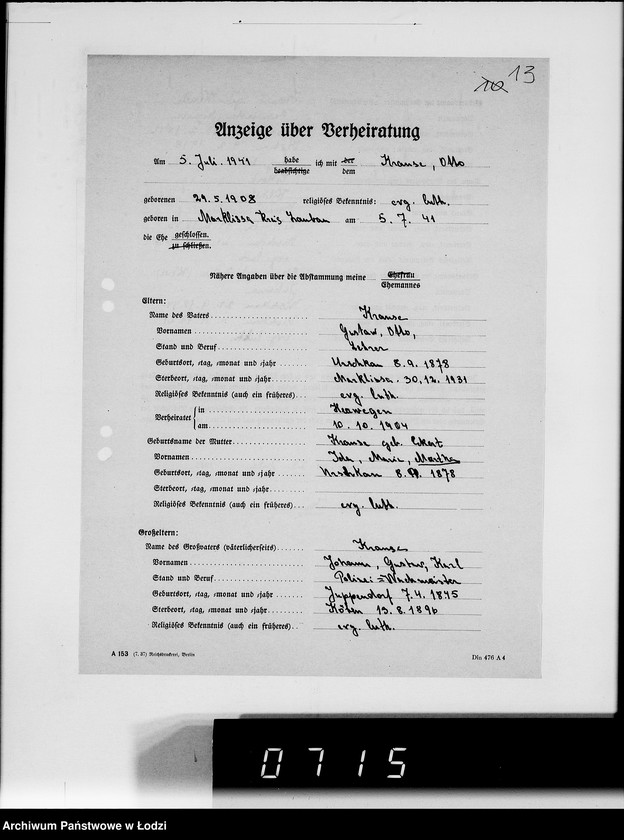 10 13
Anzeige über Verheiratung
Am 5. Juli. 1941 habe ich mit der Krause, Otto
beabsichtige dem
geborenen 29.5.1908 religiöses Bekenntnis: evg. luth.
geboren in Marklissa Kreis Lauban am 5. 7. 41
die Ehe geschlossen.
zu schließen.
Nähere Angaben über die Abstammung meine Ehefrau
Ehemannes
Eltern:
Name des Vaters Krause
Vornamen Gustav, Otto,
Stand und Beruf Lehrer
Geburtsort, =tag, =monat und =jahr Urschkau 8.9.1878
Sterbeort, =tag, =monat und =jahr Marklissa. 30.12.1931
Religiöses Bekenntnis (auch ein früheres) evg. luth.
Verheiratet in
am 10.10.1904
Geburtsname der Mutter Krause geb.
Vornamen Ida, Marie, Martha
Geburtsort, =tag, =monat und =jahr Urschkau 8. 1878
Sterbeort, =tag, =monat und =jahr
Religiöses Bekenntnis (auch ein früheres) evg. luth.
Großeltern:
Name des Großvaters (väterlicherseits) Krause
Vornamen Johann, Gustav, Karl
Stand und Beruf Polizei=Wachmeister
Geburtsort, =tag, =monat und =jahr 7.4.1845
Sterbeort, =tag, =monat und =jahr 13.8.1896
Religiöses Bekenntnis (auch ein früheres) evg. luth.
A 153 (7. 37) Reichsdruckerei, Berlin Din 476 A 4
0715
Archiwum Państwowe w Łodzi